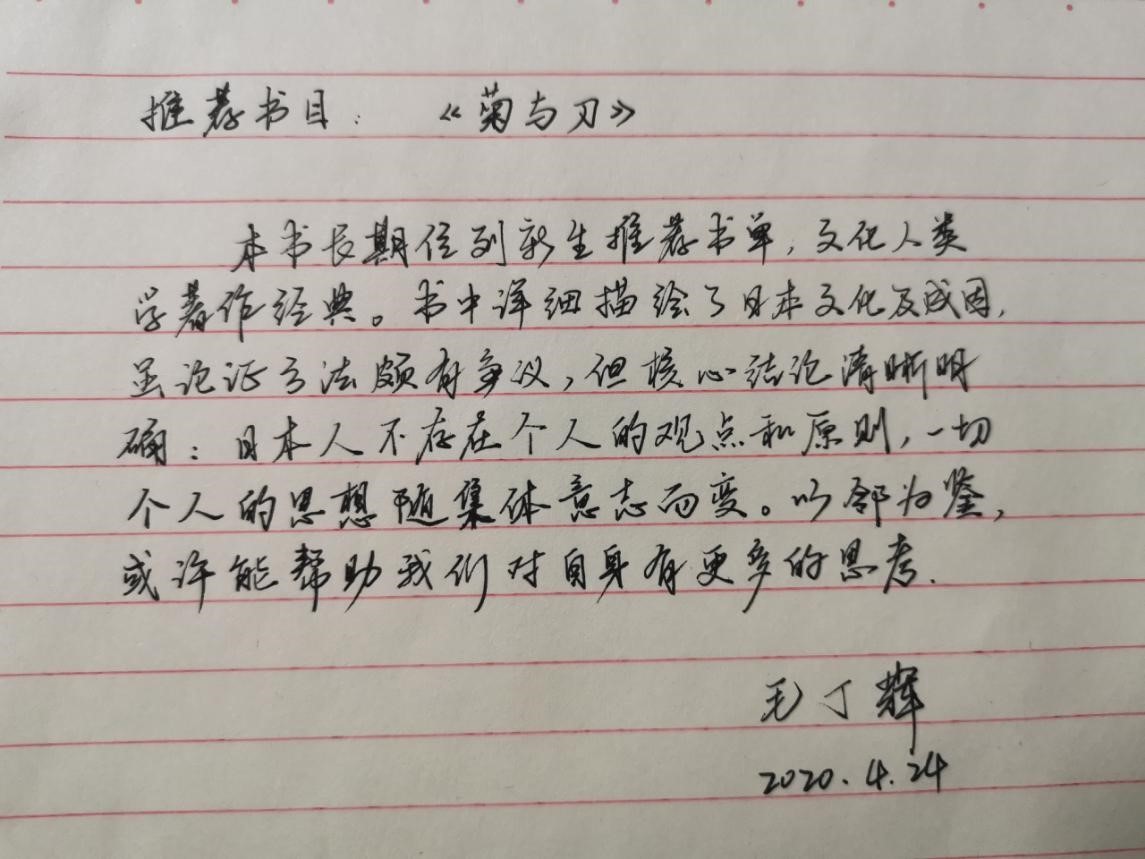 推荐书目： 《菊与刀》
本书长期位列新生推荐书单，文化人类
学著作经典。书中详细描绘了日本文化及成因，
虽论证方法颇有争议，但核心结论清晰明
确：日本人不存在个人的观点和原则，一切
个人的思想随集体意志而变。以邻为鉴，
或许能帮助我们对自身有更多的思考.
毛丁辉
2020.4.24